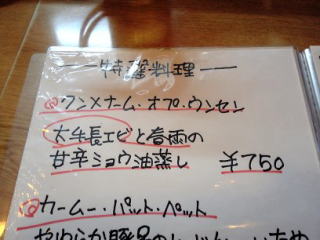 特選料理
@クンメナーム・オプ・ウンセン
大手長エビと春雨の
甘辛ショウ油蒸し ¥750
@カームー・パット・ペット
やわらか豚足の